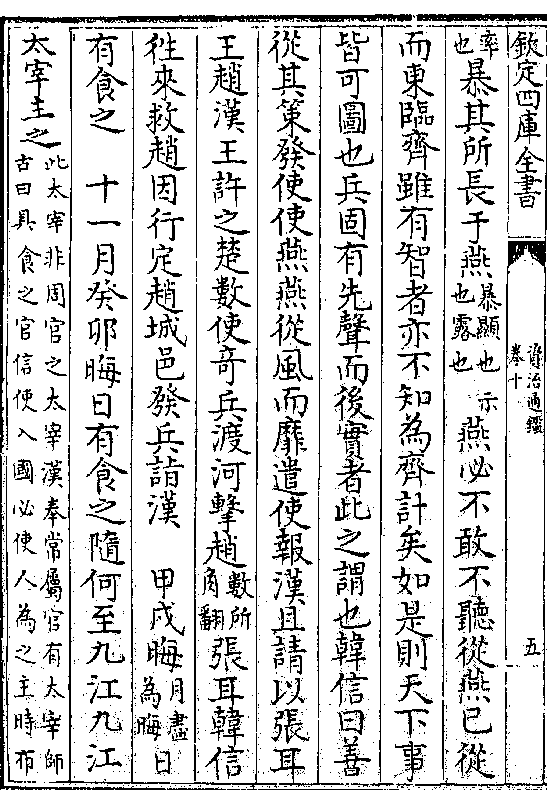 欽定四庫全書
資治通鑑
卷十
五
率
也暴其所長于燕暴顯也示
也露也燕必不敢不聽從燕已從
而東臨齊雖有智者亦不知為齊計矣如是則天下事
皆可圖也兵固有先聲而後實者此之謂也韓信曰善
從其策發使使燕燕從風而靡遣使報漢且請以張耳
王趙漢王許之楚數使奇兵渡河擊趙數所
角翻張耳韓信
徃來救趙因行定趙城邑發兵詣漢　甲戌晦月盡
為晦日
有食之　十一月癸卯晦日有食之隨何至九江九江
太宰主之此太宰非周官之太宰漢奉常屬官有太宰師
古曰具食之官信使入國必使人為之主時布